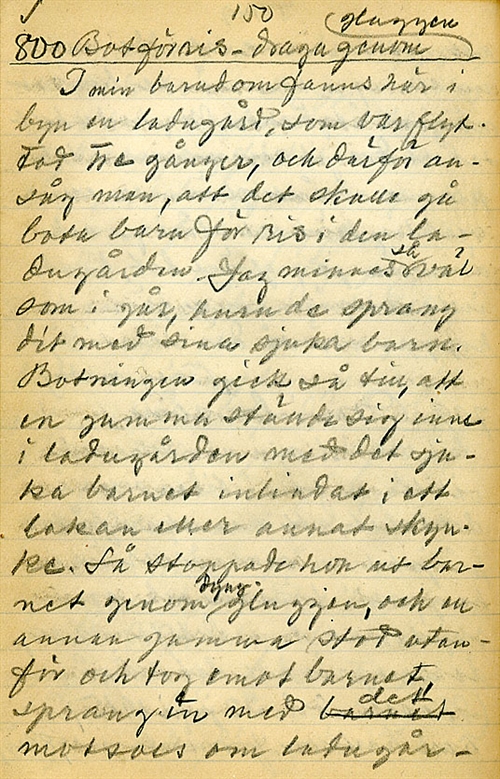 150
gluggen
800 Bot för ris - draga genom
I min barndom fanns här i
byn en ladugård, som var flyt-
tad tre gånger, och därför an-
såg man, att det skulle gå
bota barn för ris i den la-
dugården. Jag minnes så väl
som i går, huru de sprang
dit med sina sjuka barn.
Botningen gick så till, att
en gumma ställde sig inne
i ladugården med det sju-
ka barnet inlindat i ett
lakan eller annat skyn-
ke. Så stoppade hon ut bar-
net genom dyng-gluggen, och en
annan gumma stod utan-
för och tog emot barnet,
sprang in med barnet det
motsols om ladugår-